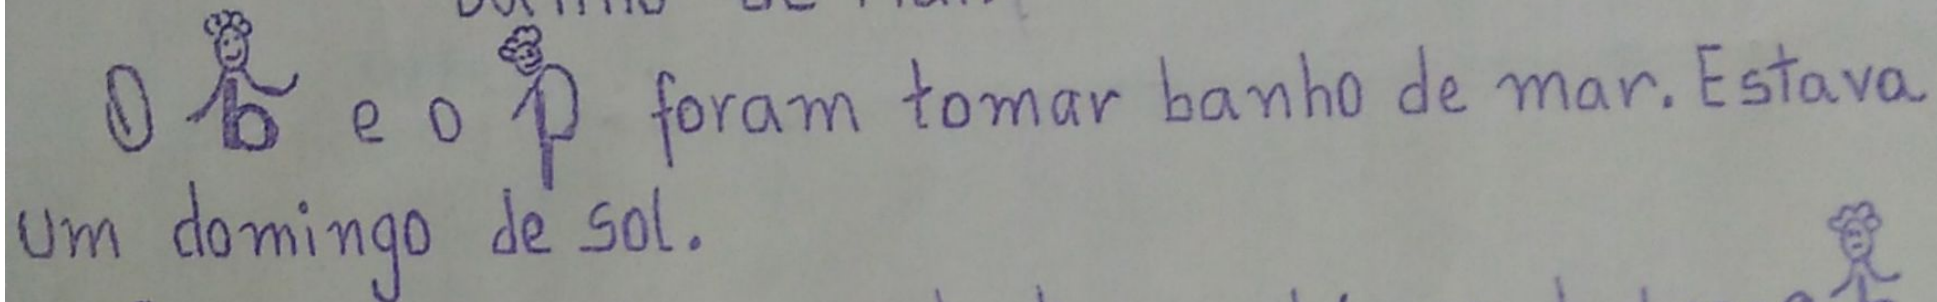 O b e o p foram tomar banho de mar. Estava
um domingo de sol.